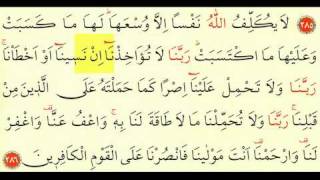 لَا يُكَلِّفُ اللّٰهُ نَفْسًا اِلَّا وُسْعَهَاۜ لَهَا مَا كَسَبَتْ ﴿٢٨٥﴾
وَعَلَيْهَا مَا اكْتَسَبَتْۜ رَبَّنَا لَا تُؤَاخِذْنَٓا اِنْ نَسِينَٓا اَوْ اَخْطَأْنَاۚ
رَبَّنَا وَلَا تَحْمِلْ عَلَيْنَٓا اِصْرًا كَمَا حَمَلْتَهُ عَلَى الَّذِينَ مِنْ
قَبْلِنَاۚ رَبَّنَا وَلَا تُحَمِّلْنَا مَا لَا طَاقَةَ لَنَا بِهِۚ وَاعْفُ عَنَّا۠ وَاغْفِرْ
لَنَا۠ وَارْحَمْنَا۠ اَنْتَ مَوْلٰينَا فَانْصُرْنَا عَلَى الْقَوْمِ الْكَافِرِينَ ﴿٢٨٦﴾